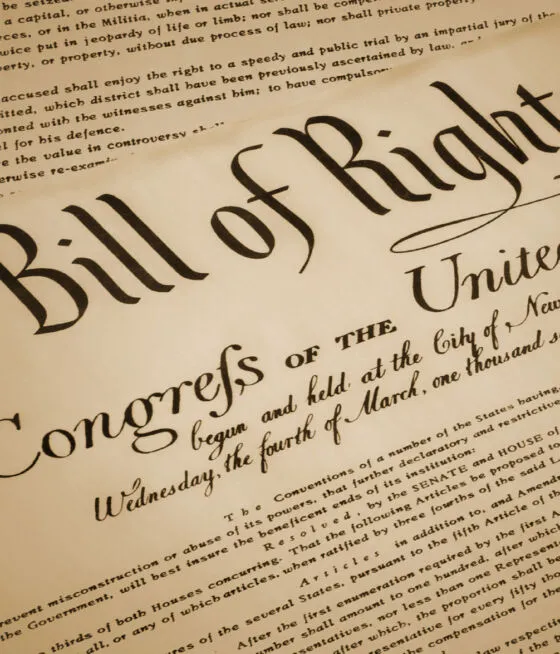 be seized
a capital, or otherwise
rces, or in the Militia, when in actual
wice put in jeopardy of life or limb; nor shall be
erty, or property, without due process of law; nor shall private property
accused shall enjoy the right to a speedy and public trial by an impartial jury of the
itted, which district shall have been previously ascertained by law, and
onted with the witnesses against him; to have compulsor
el for his defence.
re the value in controversy shall
erwise re-exami
Bill of Right
Congreſs OF THE Unite
begun and held at the City of New
Wednesday, the fourth of March, one thousand s
The Conventions of a number of the States having
revent misconstruction or abuse of its powers, that further declaratory and restrictive
the Government, will best insure the beneficent ends of its institution:
Resolved, by the SENATE and HOUSE of
thirds of both Houses concurring. That the following Articles be proposed to
all, or any of which articles, when ratified by three fourths of the said L
Articles in addition to, and Amend
ures of the several States, pursuant to the fifth Article of th
After the first enumeration required by the first A
number shall amount to one hundred, after which
sentatives, nor less than one Represent
after which, the proportion shall be
resentative for every fifty tho
the compensation for the
law respec